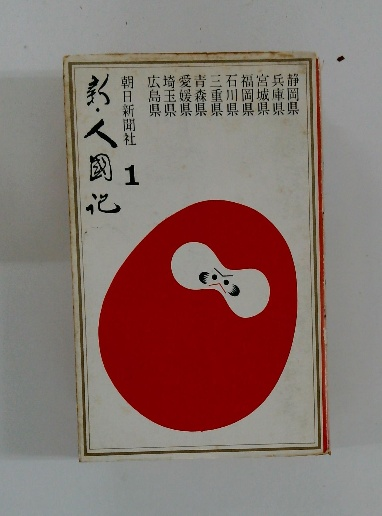 静岡県
兵庫県
宮城県
福岡県
石川県
三重県
青森県
愛媛県
埼玉県
広島県
朝日新聞社
1
新・人國記